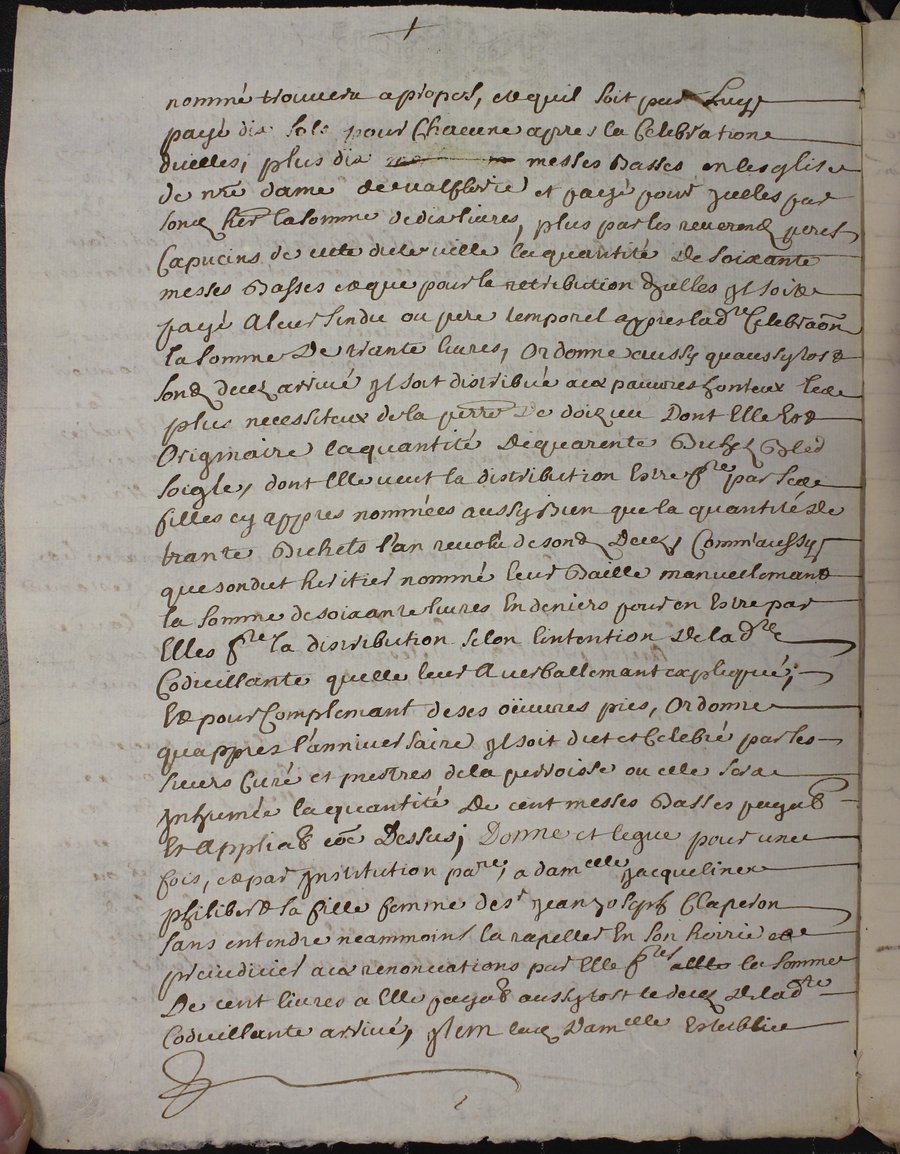 nommé trouvera apropos, et quil soit par luy
payé dix sols pour chacune apres la Celebratione
dicelles, plus dix messes basses en lesglise
de nre dame de valflerie et payé pour jcelles par
sond her la somme de dix livres, plus par les reverend peres
Capucins de cette ditte ville la quantité de soixante
messes basses et que pour la retribution djcelles jl soit
payé a leur sindic ou pere temporel appres lad.re Celebraôn
la somme de trante livres, ordonne aussy quaussytost
sond deces arrivé jl soit distribué aux pauvres honteux les
plus necessiteux de la perre de doizieu dont Elle est
Originaire la quantité de quarente bichets bled
soigle, dont Elle veut la distribution Estre f.re par ses
filles cy appres nommées aussy bien que la quantité de
trante bichets l'an revolu de sond deces, Comm'aussy
que sondit heritier nommé leur baille manuellemant
la somme de soixante livres En deniers pour en Estre par
Elles f.te la distribution selon l'intention de lad.te
Codicillante quelle leur a verballemant expliqué,
Et pour Complemant de ses oeuvres pies, ordonne
quappres l'anniversaire jl soit dict et Celebré par les
sieurs Curé et prestres de la perroisse ou elle sera
jnhumée la quantité de cent messes basses payab
Et appliab cõe dessus; Donne et legue pour une
fois, et par jnstitution pa.re, a dam.elle jacqueline
philiberd sa fille femme de s.r jean joseph Claperon
sans entendre neammoins la rapeller En son heirie et
prejudicier aux renonciations par Elle f.tes la somme
De cent livres a Elle payab aussytost le deces de lad.te
Codicillante arrivé, jtem lad dam.elle Establie